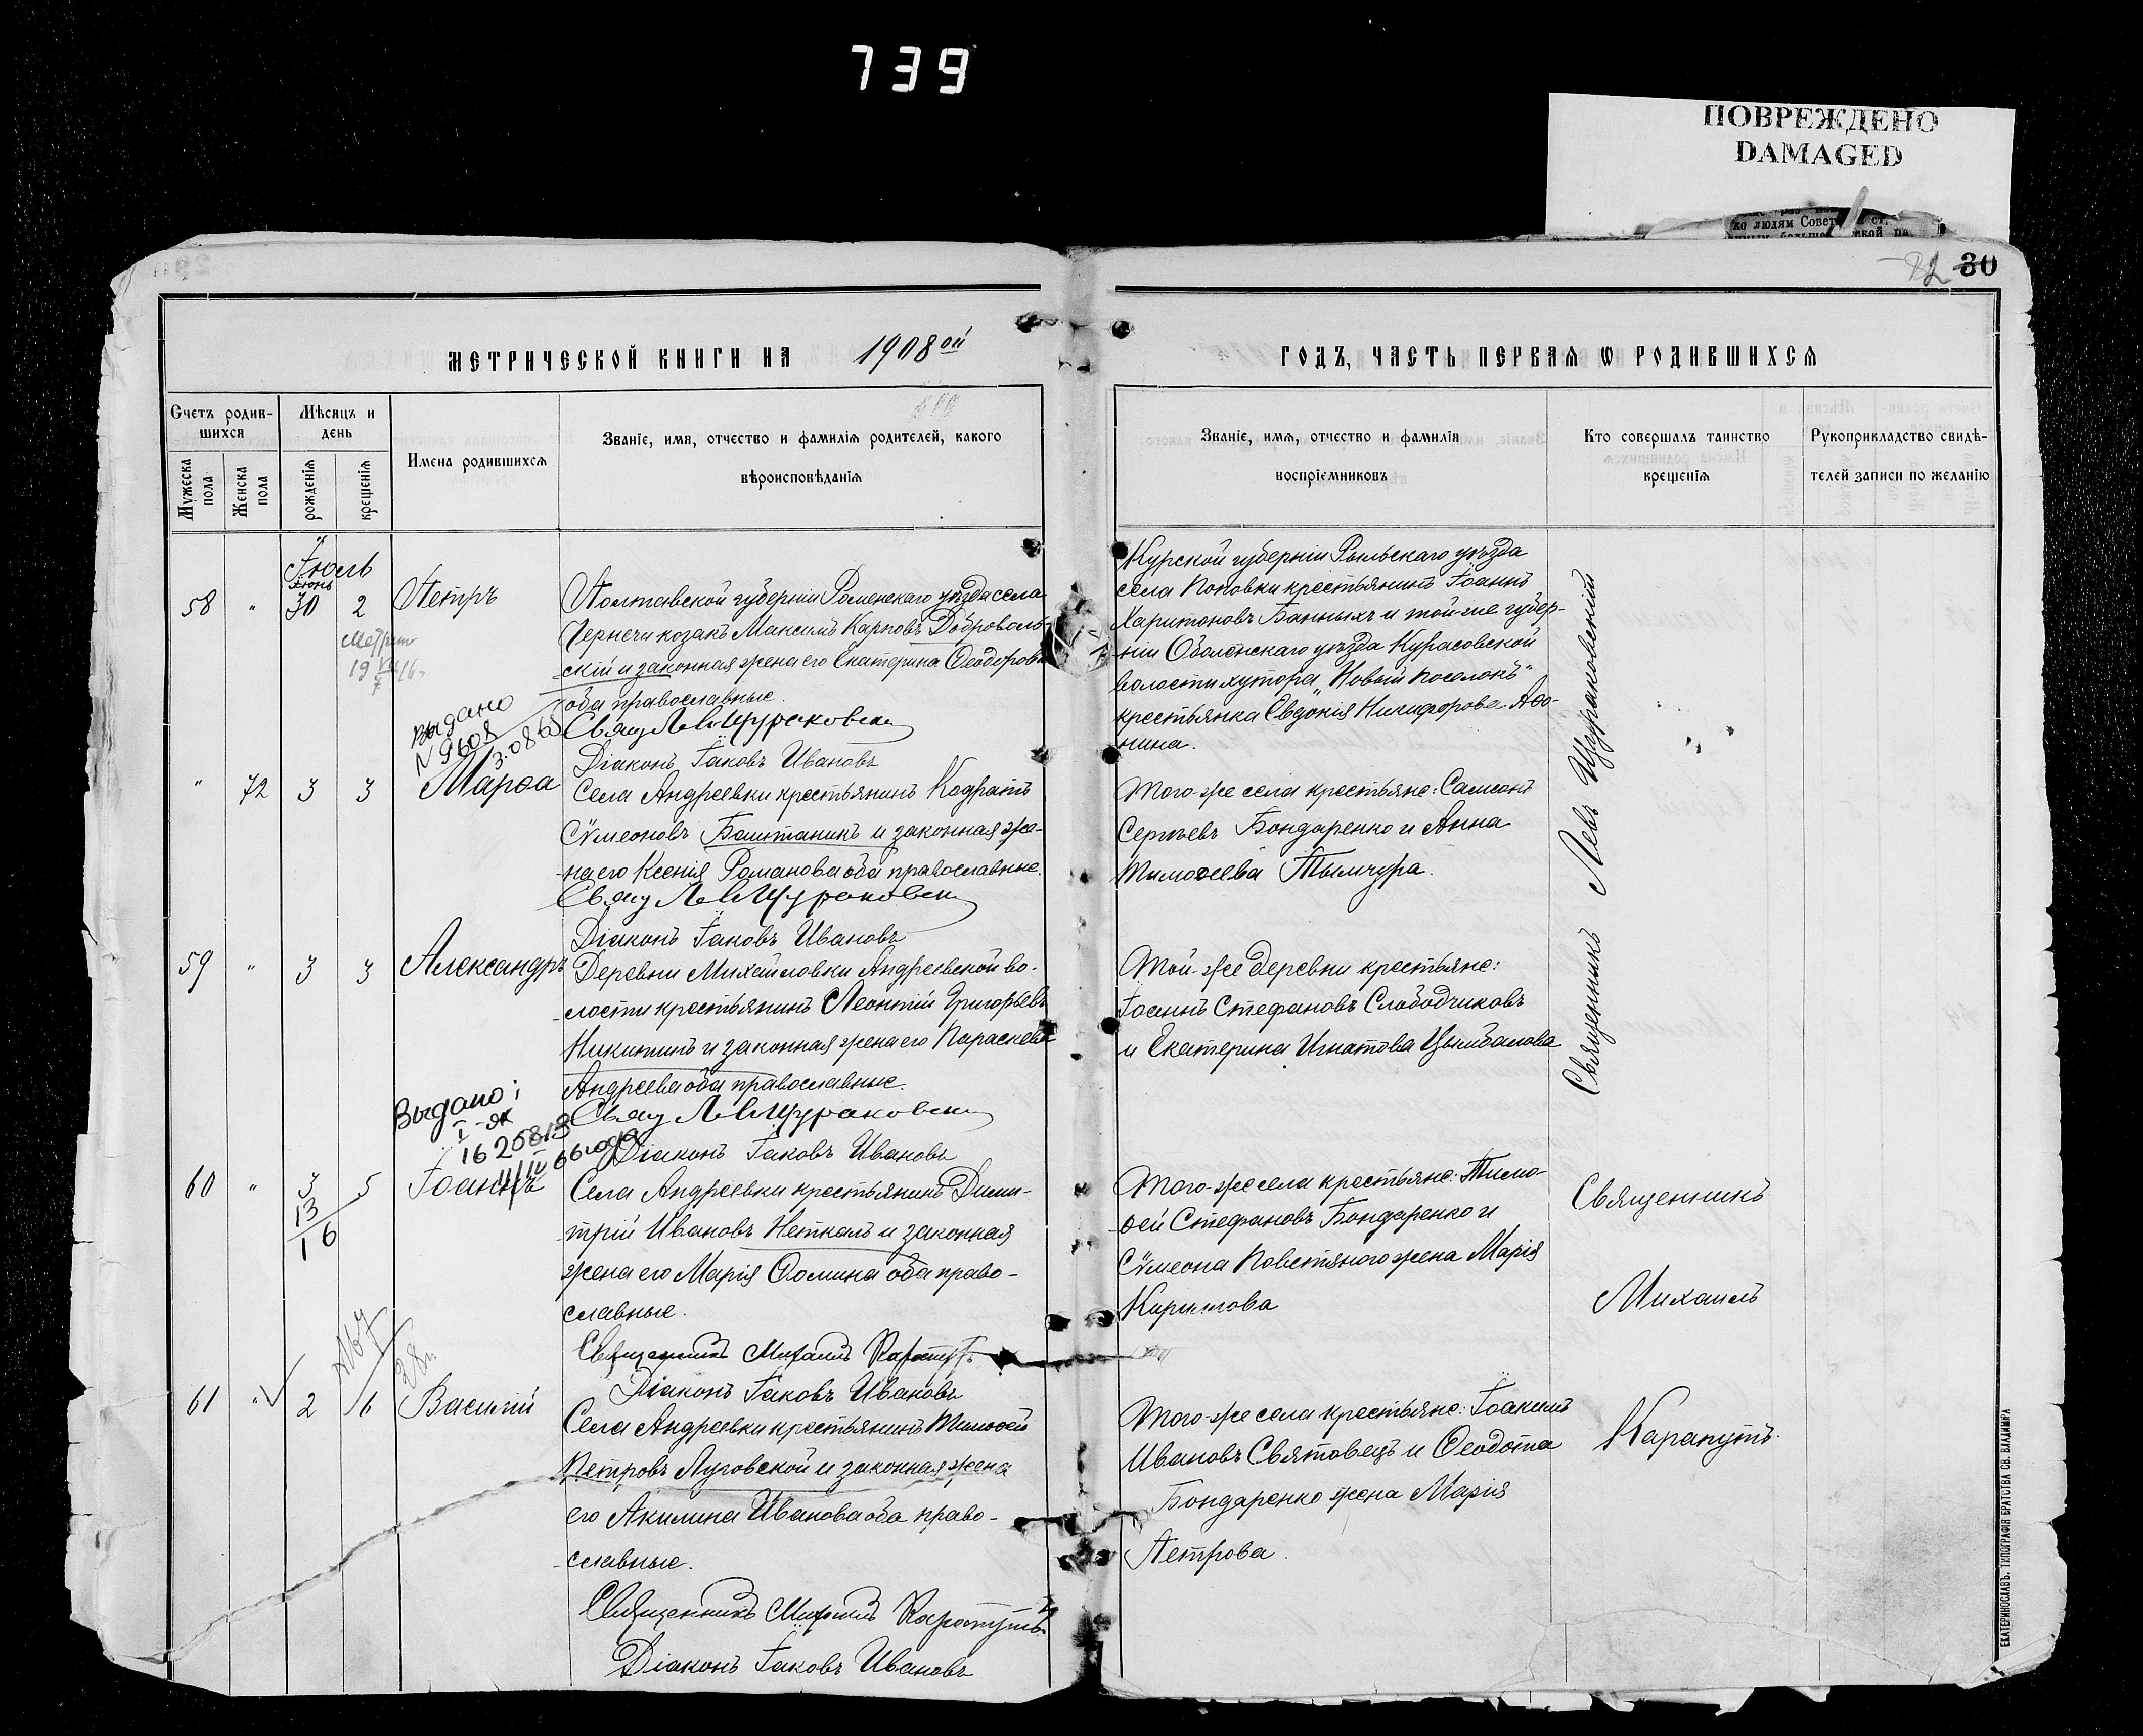 739
ПОВРЕЖДЕНО
DAMAGED
30
МЕТРИЧЕСКОЙ КНИГИ НА 1908ой
ГОДЪ, ЧАСТЬ ПЕРВАЯ Ѡ РОДИВШИХСЯ
Счетъ родив-
шихся
Мужеска пола
Женска пола
Мѣсяцъ и
день
рожденія
крещенія
Имена родившихся
Званіе, имя, отчество и фамилія родителей, какого
вѣроисповѣданія
Званіе, имя, отчество и фамилія
воспріемниковъ
Кто совершалъ таинство
крещенія
Рукоприкладство свидѣ-
телей записи по желанію
Іюль
Іюнь
58 " 30 2 Петръ
Полтавской губерніи Роменскаго уѣзда села
Чернечи козакъ Максимъ Карповъ Доброволь-
скій и законная жена его Екатерина Ѳеодорова
оба православные.
Діаконъ Іаковъ Ивановъ
Курской губерніи Рыльскаго уѣзда
села Поповки крестьянинъ Іоаннъ
Харитоновъ Банныхъ и той-же губер-
ніи Обоянскаго уѣзда Курасовской
волости хутора „Новый поселокъ"
крестьянка Евдокія Никифорова Аѳо-
нина.
выдано
" 72 3 3 Марѳа
Села Андреевки крестьянинъ Кодратъ
Сѵмеоновъ Баштаникъ и законная же-
на его Ксенія Романова оба православные.
Діаконъ Іаковъ Ивановъ
Того-же села крестьяне: Самсонъ
Сергѣевъ Бондаренко и Анна
Тимоѳеева Тымчура.
Священникъ Левъ Щураковскій
59 " 3 3 Александръ
Деревни Михайловки Андреевской во-
лости крестьянинъ Леонтій Григорьевъ
Никитинъ и законная жена его Параскева
Андреева оба православные.
Діаконъ Іаковъ Ивановъ
Той-же деревни крестьяне:
Іоаннъ Стефановъ Слободчиковъ
и Екатерина Игнатова Цымбалова
Выдано:
60 " 3 5 Іоаннъ
13
16
Села Андреевки крестьянинъ Дими-
трій Ивановъ Неткалъ и законная
жена его Марія Ѳомина оба право-
славные.
Священникъ Михаилъ Карапутъ
Діаконъ Іаковъ Ивановъ
Того-же села крестьяне: Тимо-
ѳей Стефановъ Бондаренко и
Сѵмеона Поветяного жена Марія
Кириллова
Священникъ
Михаилъ
Карапутъ.
61 " 2 6 Василій
Села Андреевки крестьянинъ Тимоѳей
Петровъ Луговской и законная жена
его Акилина Иванова оба право-
славные.
Священникъ Михаилъ Карапутъ
Діаконъ Іаковъ Ивановъ
Того-же села крестьяне: Іоакимъ
Ивановъ Святовецъ и Ѳеодота
Бондаренко жена Марія
Петрова.
ЕКАТЕРИНОСЛАВЪ. ТИПОГРАФІЯ БРАТСТВА СВ. ВЛАДИМІРА